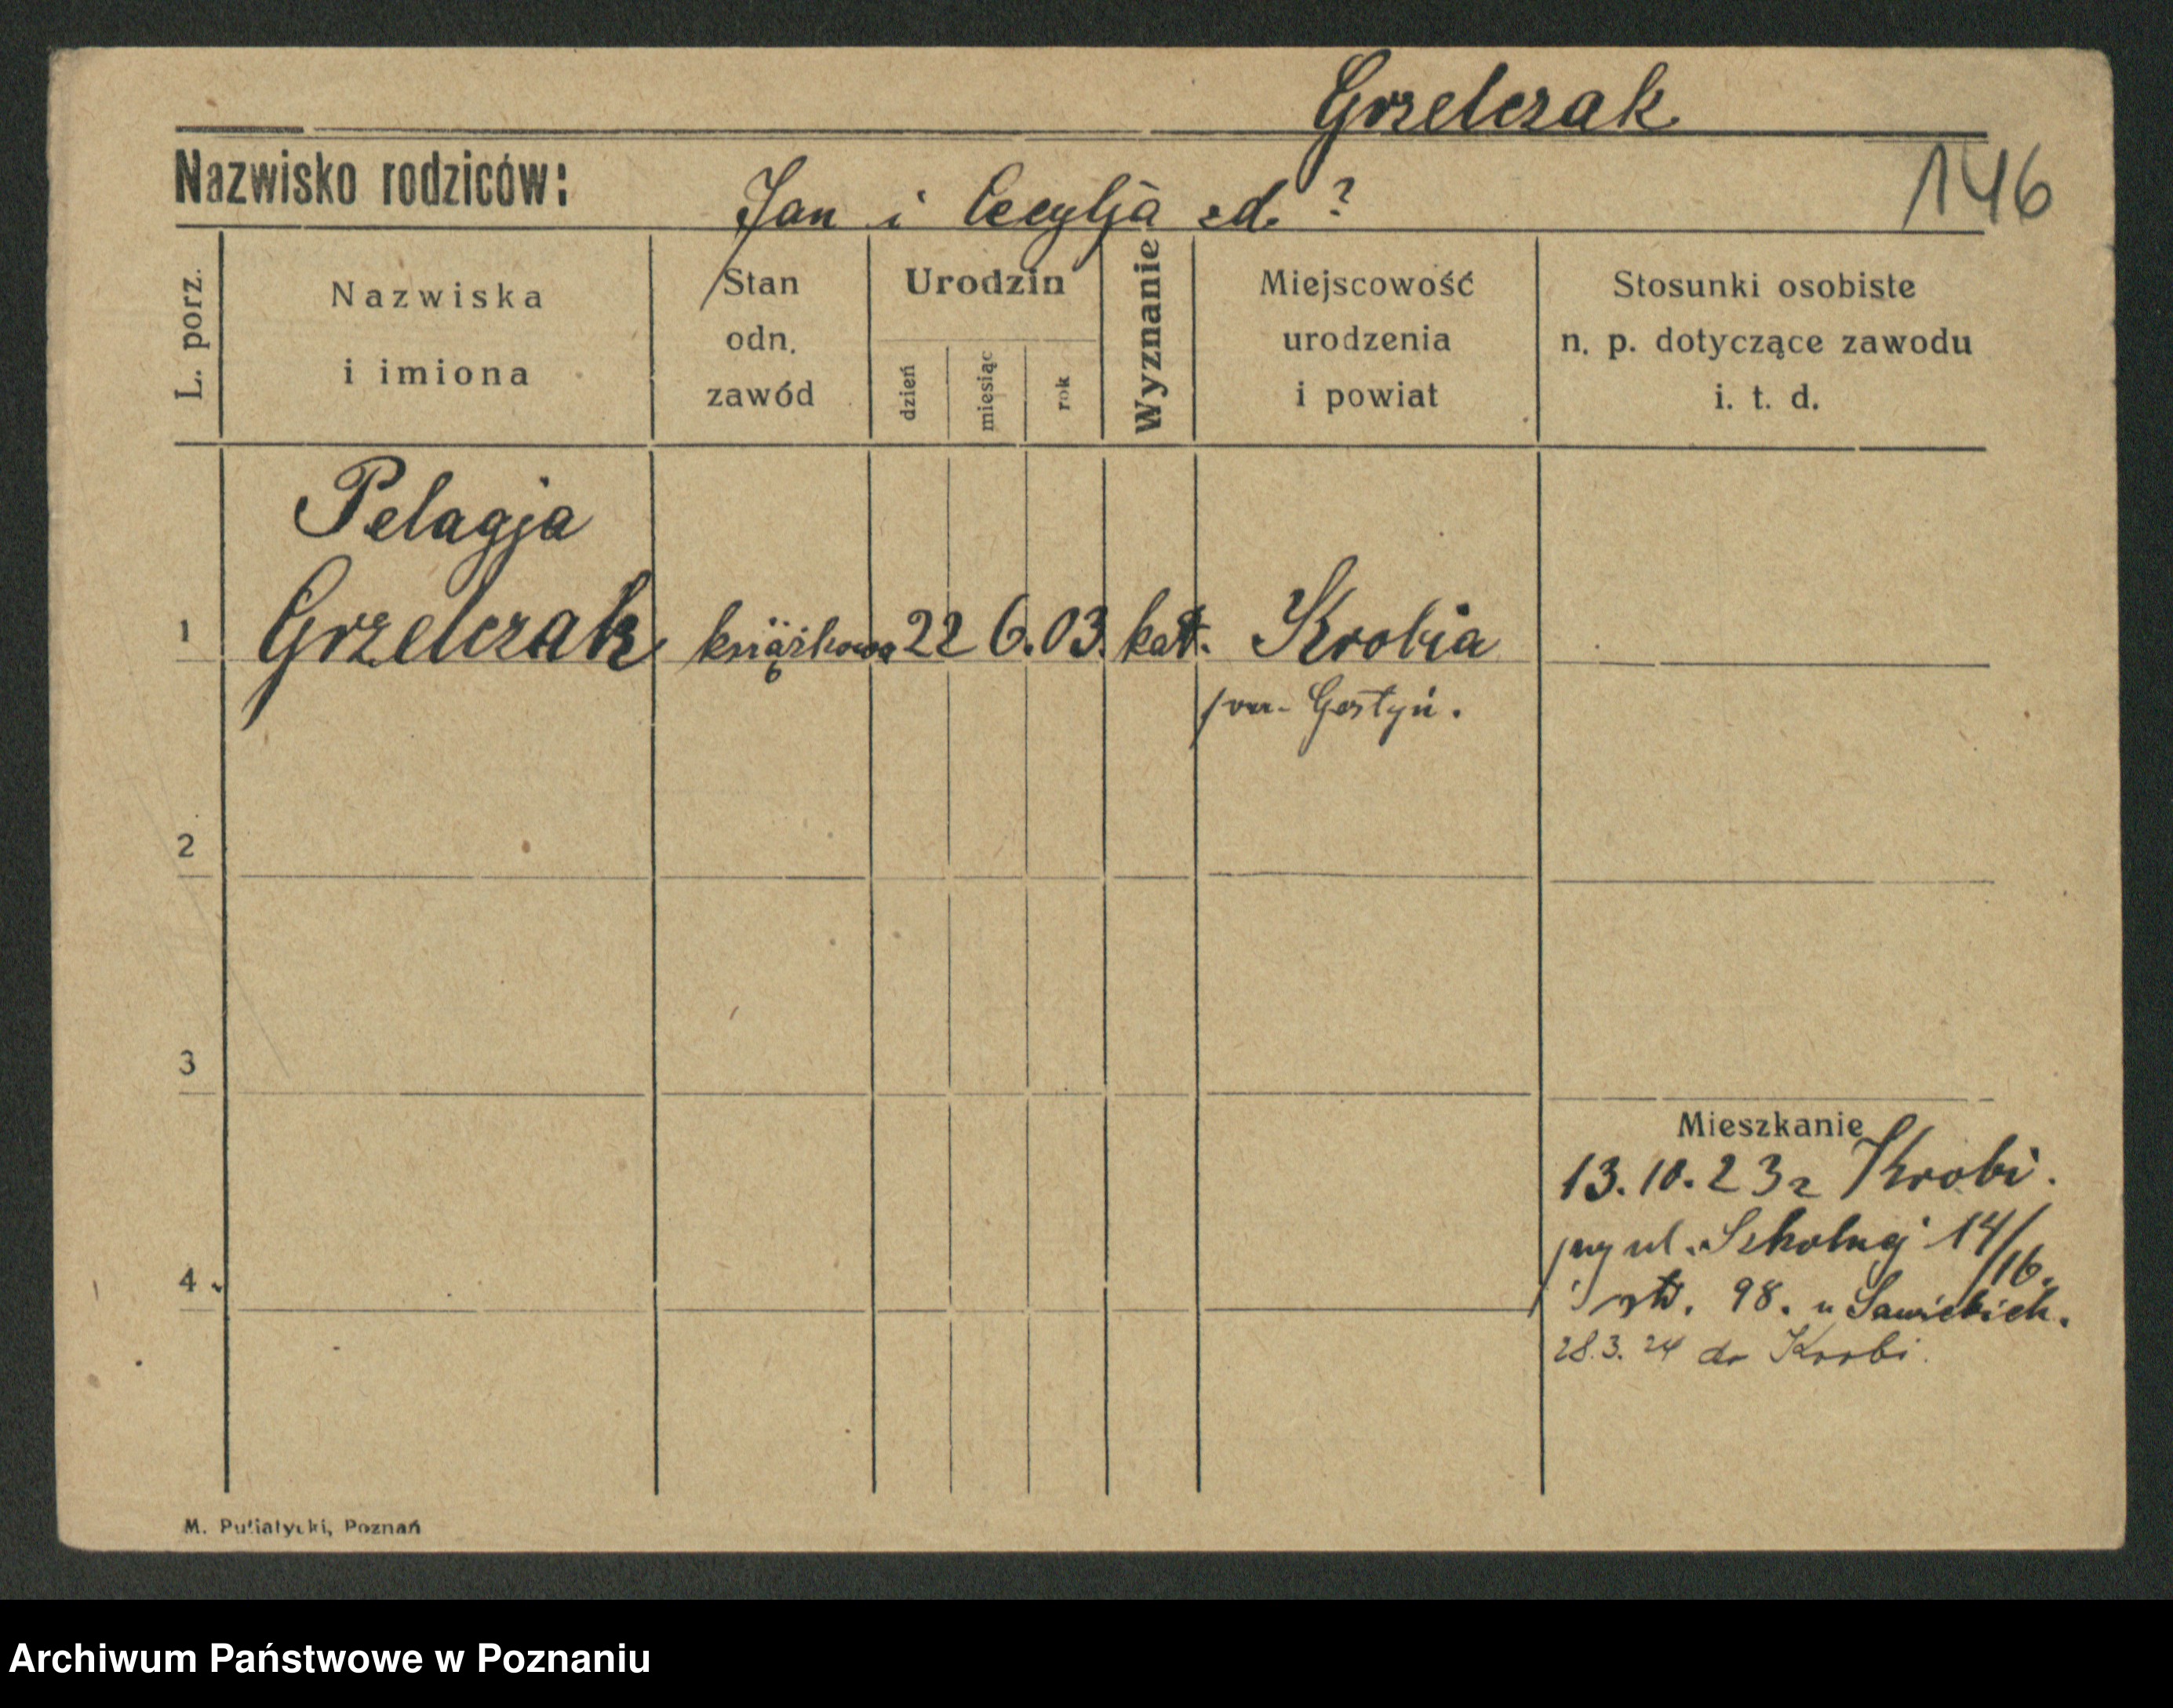 Grzelczak
Nazwisko rodziców: Jan i Cecylja zd. ?
146
L. porz.
Nazwiska
i imiona
Stan
odn.
zawód
Urodzin
dzień
miesiąc
rok
Wyznanie
Miejscowość
urodzenia
i powiat
Stosunki osobiste
n. p. dotyczące zawodu
i. t. d.
Pelagja
1 Grzelczak książkowa 22 6. 03. kat. Krobia
pow. Gostyń.
2
3
Mieszkanie
13.10.23 z Krobi.
przy ul. Szkolnej 14/16.
4
98. u Sawickich.
28.3.24 do Krobi.
M. Putiatycki, Poznań
Archiwum Państwowe w Poznaniu